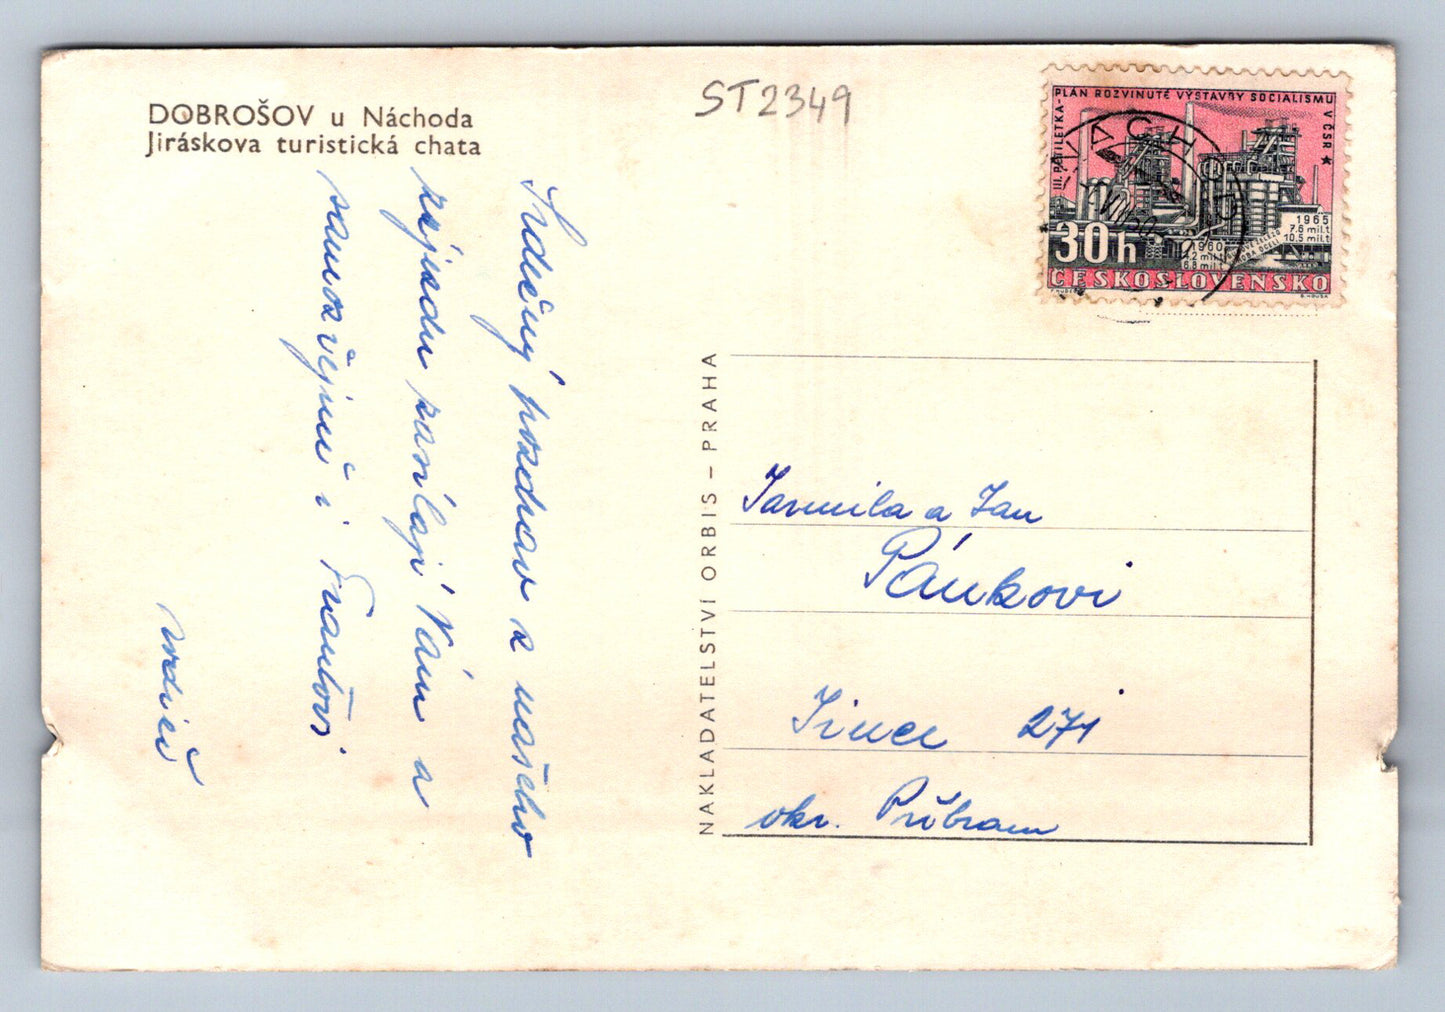 DOBROŠOV u Náchoda
Jiráskova turistická chata
ST2349
III. PĚTILETKA - PLÁN ROZVINUTÉ VÝSTAVBY SOCIALISMU V ČSR ★
NÁCHOD
30h
1960
4.2 mil.t
6.8 mil.t
1965
7.6 mil.t
10.5 mil.t
ČESKOSLOVENSKO
Srdečný pozdrav z našeho
zájezdu zasílají Vám a
samozřejmě i Frantovi
NAKLADATELSTVÍ ORBIS – PRAHA
Jarmila a Jan
Pánkovi
Jince 271
okr. Příbram